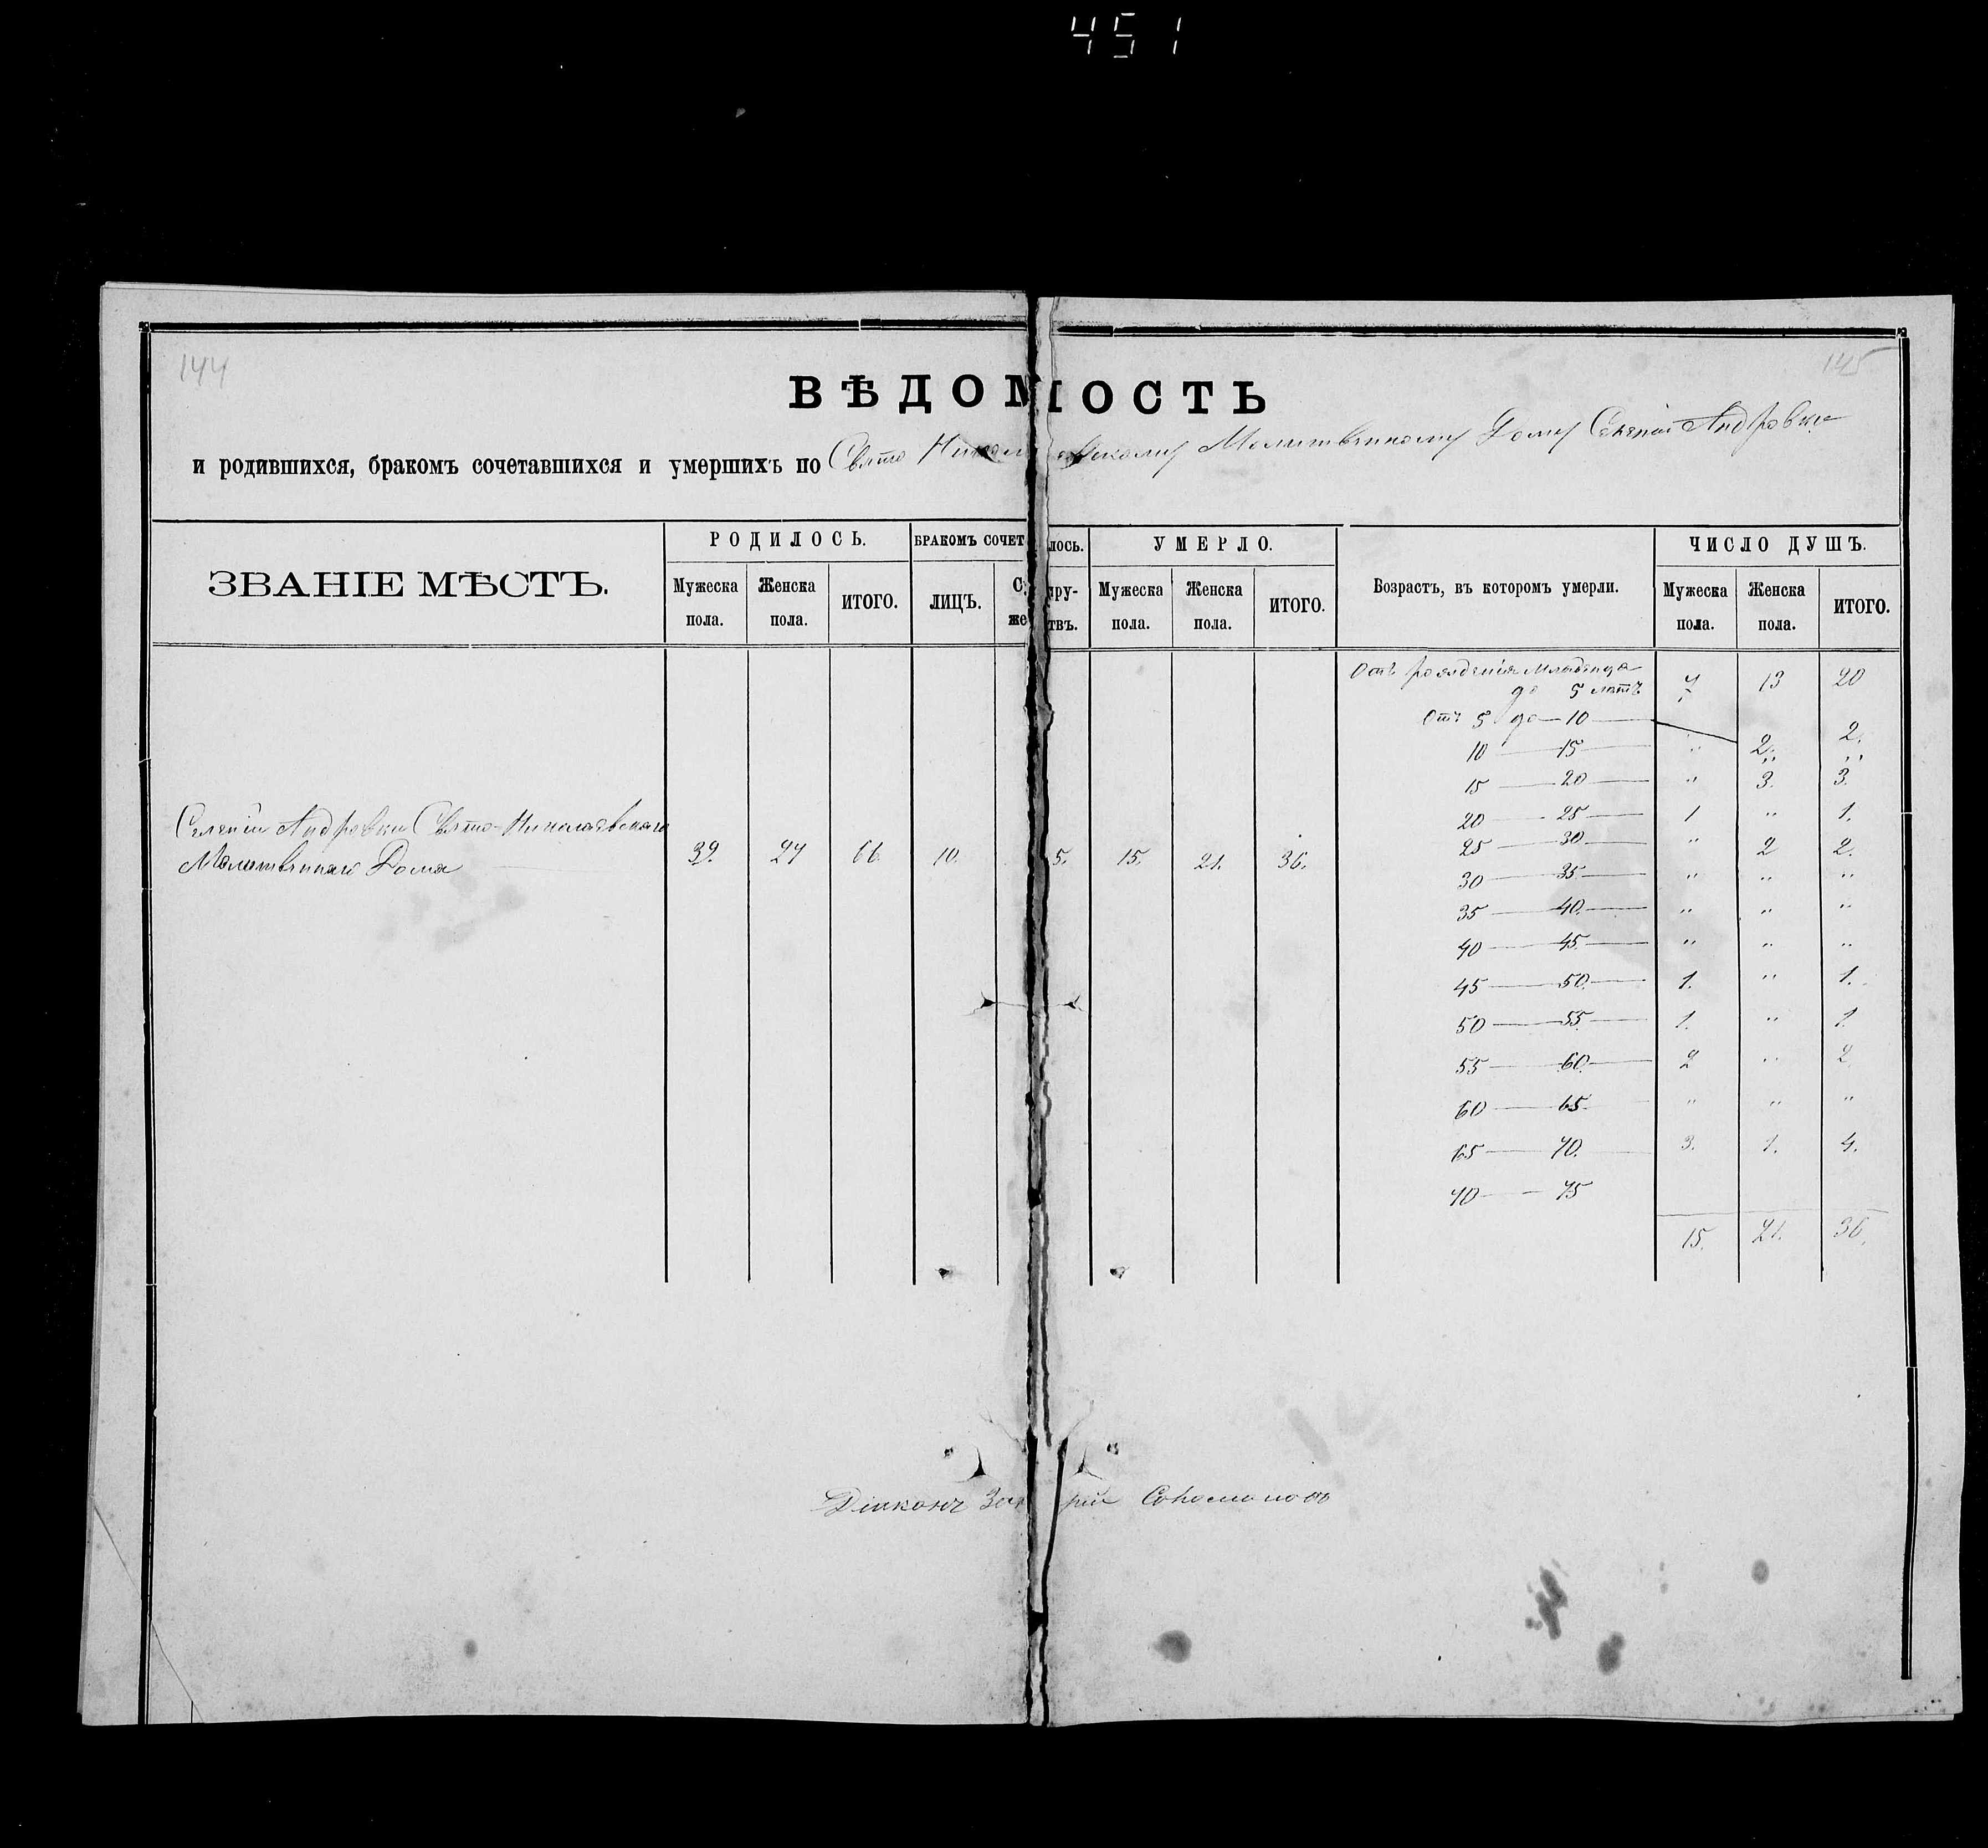 451
144
145
ВѢДОМОСТЬ
и родившихся, бракомъ сочетавшихся и умершихъ по Свято Николаевскому Молитвенному Дому Селенія Андровки
ЗВАНІЕ МѢСТЪ.
РОДИЛОСЬ.
БРАКОМЪ СОЧЕТ лось.
УМЕРЛО.
Возрастъ, въ которомъ умерли.
ЧИСЛО ДУШЪ.
Мужеска пола.
Женска пола.
ИТОГО.
ЛИЦЪ.
Су пру-
же твъ.
Мужеска пола.
Женска пола.
ИТОГО.
Мужеска пола.
Женска пола.
ИТОГО.
Селенія Андровки Свято-Николаевскаго
Молитвеннаго Дома 39. 27 66 10. 5. 15. 21. 36.
Отъ рожденія младенца
до 5 лѣтъ 7 13 20
Отъ 5 до — 10
10 — 15 " 2. 2.
15 — 20 " 3. 3.
20 — 25 1 " 1.
25 — 30 " 2 2.
30 — 35 " " "
35 — 40. " " "
40 — 45. " " "
45 — 50. 1. " 1.
50 — 55 1. " 1.
55 — 60. 2 " 2
60 — 65. " " "
65 — 70. 3. 1. 4.
70 — 75
15. 21. 36.
Діаконъ